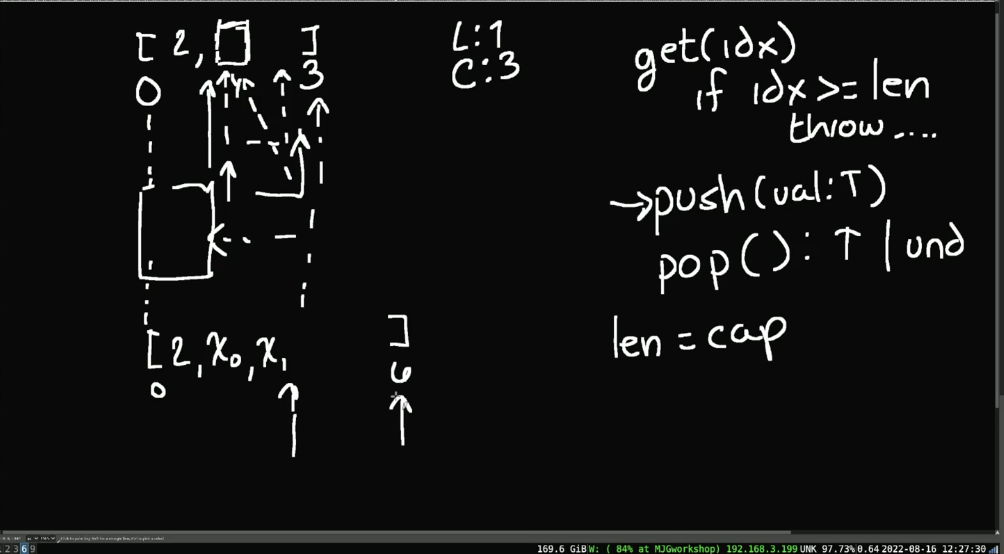 [ 2, ]
0
3
L:1
C:3
get(idx)
if idx>=len
throw....
→push(val:T)
pop(): T | und
len = cap
[ 2, x₀, x₁ ]
0
6
1 2 3 6 9
169.6 GiB W: ( 84% at MJGworkshop) 192.168.3.199 UNK 97.73% 0.64 2022-08-16 12:27:30